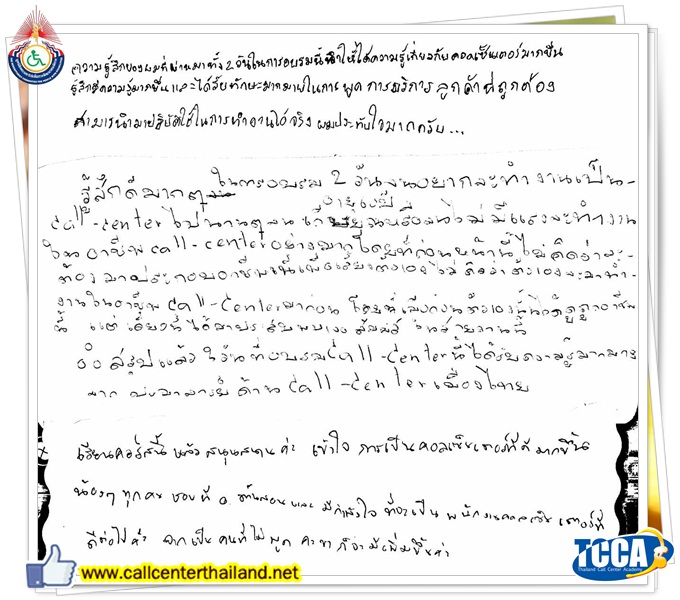 ความรู้สึกของผมที่ผ่านมาทั้ง 2 วันในการอบรมนี้ทำให้ได้ความรู้เกี่ยวกับคอลเซ็นเตอร์มากขึ้น
รู้สึกมีความรู้มากขึ้น และได้รับทักษะมากมายในการ พูด การบริการ ลูกค้าที่ถูกต้อง
สามารถนำมาปฏิบัติใช้ในการทำงานได้จริง ผมประทับใจมากครับ...
รู้สึกดีมาก ในการอบรม 2 วัน จนอยากจะทำงานเป็น-
call-center ไปนาน จนไม่มีแรงจะทำงาน
ในอาชีพ call-center โดยที่ก่อนหน้านี้ไม่คิดว่าจะ-
ต้องมาประกอบอาชีพนี้เพื่อเลี้ยงตัวเอง ไม่คิดว่าตัวเองจะมาทำ-
งานในอาชีพ call-center มาก่อน โดยที่เมื่อก่อนตัวเองนั้น ดูถูกอาชีพ
นี้ แต่เดี๋ยวนี้ได้มาประสบพบเจอ ในสายงานนี้
สรุปแล้ว 2 วันที่อบรม call-center นี้ได้รับความรู้มากมาย
จาก ด้าน call-center เมืองไทย
เรียนคอร์สนี้ แล้ว สนุกสนาน ค่ะ เข้าใจ การเป็นคอลเซ็นเตอร์ที่ดี มากขึ้น
น้องๆ ทุกคน ชอบที่ อ. สอน และ มีกำลังใจ ที่จะเป็น พนักงานคอลเซ็นเตอร์ที่
ดีต่อไปค่ะ จากเป็น คนที่ไม่ พูด คะ ขา ก็จะมีเพิ่มขึ้นค่ะ
www.callcenterthailand.net
TCCA
Thailand Call Center Academy